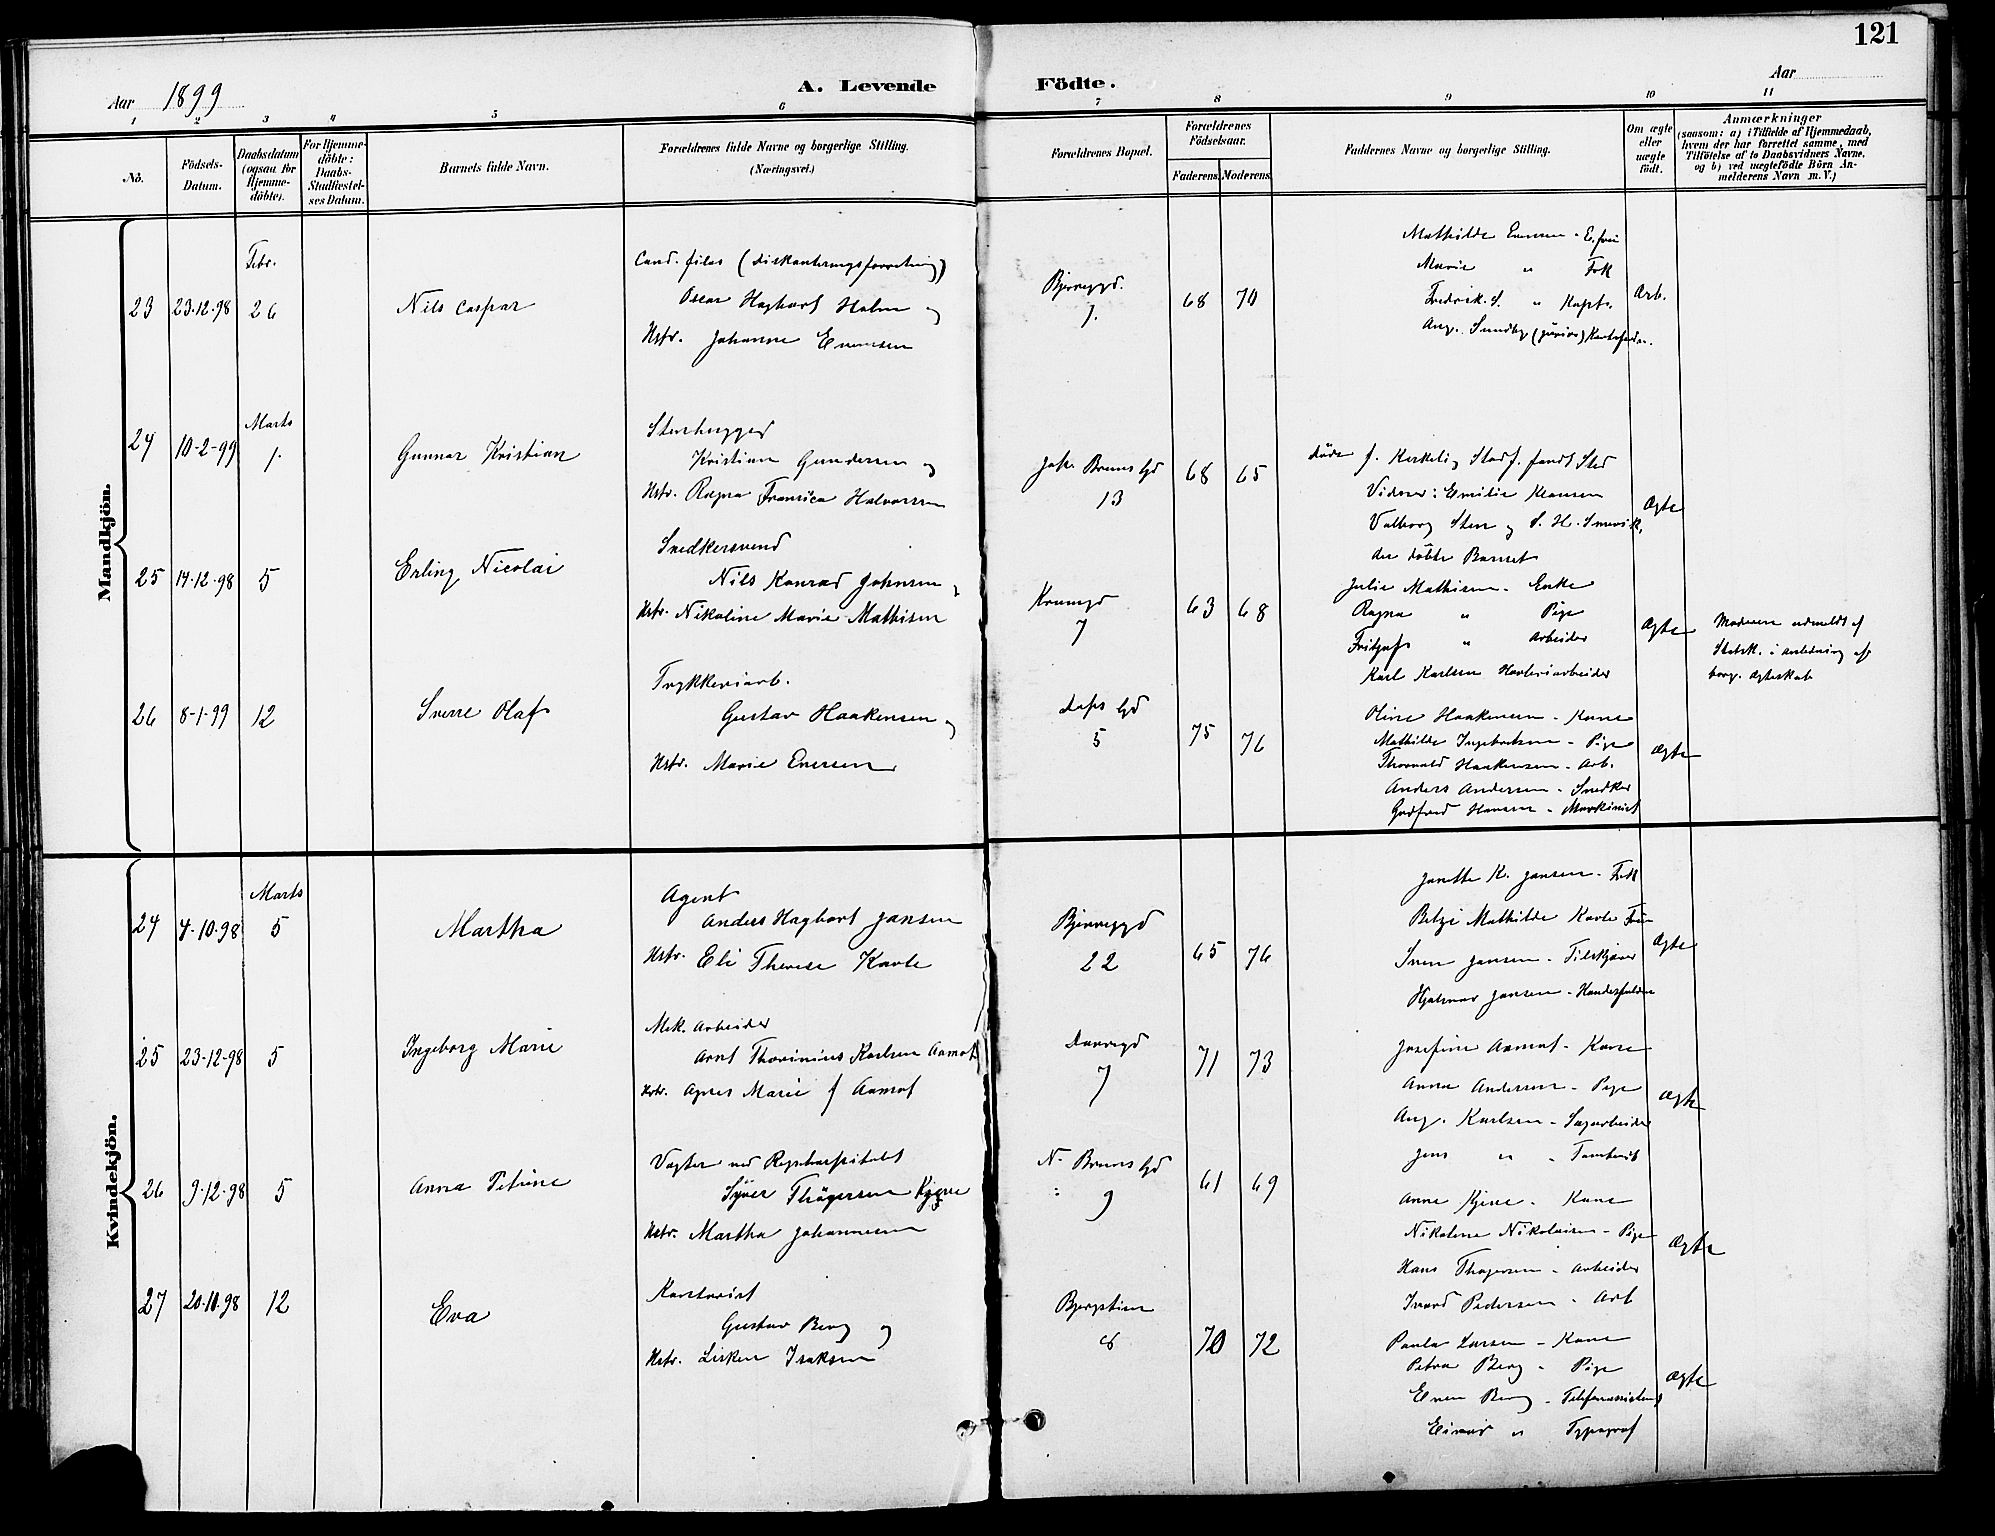 121
Aar 1899
A. Levende Födte.
Aar
1 2 3 4 5 6 7 8 9 10 11
No.
Födsels-Datum.
Daabsdatum (ogsaa for Hjemme-döbte).
For Hjemme-döbte: Daabs-Stadfæstel-ses Datum.
Barnets fulde Navn.
Forældrenes fulde Navne og borgerlige Stilling. (Næringsvei.)
Forældrenes Bopæl.
Forældrenes Födselsaar.
Faderens. Moderens.
Faddernes Navne og borgerlige Stilling.
Om ægte eller uægte födt.
Anmærkninger
(saasom: a) i Tilfælde af Hjemmedaab, hvem der har forrettet samme, med Tilföielse af to Daabsvidners Navne, og b) ved uægtefödte Börn An-melderens Navn m. V.)
Mandkjön.
Febr.
23 23.12.98 26 Nils Caspar
Oscar Hagbart Holm og
Hstr. Johanne Evensen
7. 68 70
Marie " Frk
Fredrik. S. " Kapt.
Marts
24 10-2-99 1. Gunnar Kristian
Stenhugger
Kristian Gundersen og
Hstr. Ragna Fransica Halvorsen
13 68 65
Vidner: Emilie Klausen
der döbte Barnet
Ægte
25 14.12.98 5 Erling Nicolai
Snedkersvend
Nils Konrad Johnsen
Hstr. Nikoline Marie Mathisen
7 63 68
Julie Mathisen - Enke
Ragna " Pige
Fritjof " Arbeider
Karl Karlsen
Ægte
Moderen udmeldt af
Statsk. i anledning af
borg. Ægteskab
26 8-1-99 12 Sverre Olaf
Trykkeriarb.
Gustav Haakensen
Hstr. Marie Eversen
5 75 76
Oline Haakensen - Kone
Mathilde Ingebretsen - Pige
Thorvald Haakensen - Arb.
Anders Andersen - Snedker
Godfred Hansen - Maskinist
Ægte
Kvindekjön.
Marts
24 4-10-98 5 Martha
Agent
Anders Hagbart Jansen
Hstr. Eli Therese Kavle
22 65 76
Janette K. Jansen - Frk
Betzi Mathilde Kavle Fru
Sven Jansen -
Hjalmar Jansen -
Ægte
25 23-12-98 5 Ingeborg Marie
Mek. Arbeider
Arnt Thorinius Karlsen Aamot
Hstr. Agnes Marie f Aamot
7 71 73
Josefine Aamot - Kone
Anna Andersen - Pige
Aug. Karlsen - Sagarbeider
Jens " -
Ægte
26 9-12-98 5 Anna Petrine
Vagter ved Rigshospitalet
Syver Thögersen Kjerne
Hstr. Martha Johannesen
N. Bruns Gd
9 61 69
Anne Kjerne - Kone
Nikoline Nikolaisen - Pige
Hans Thogersen - Arbeider
Ivard Pedersen - Arb
Ægte
27 20-10.98 12 Eva
Kontorist
Gustav Berg og
Hstr. Lisken Isaksen
Bjergstien
8 70 72
Paula Larsen - Kone
Petra Berg - Pige
Einar " Typograf
Ægte